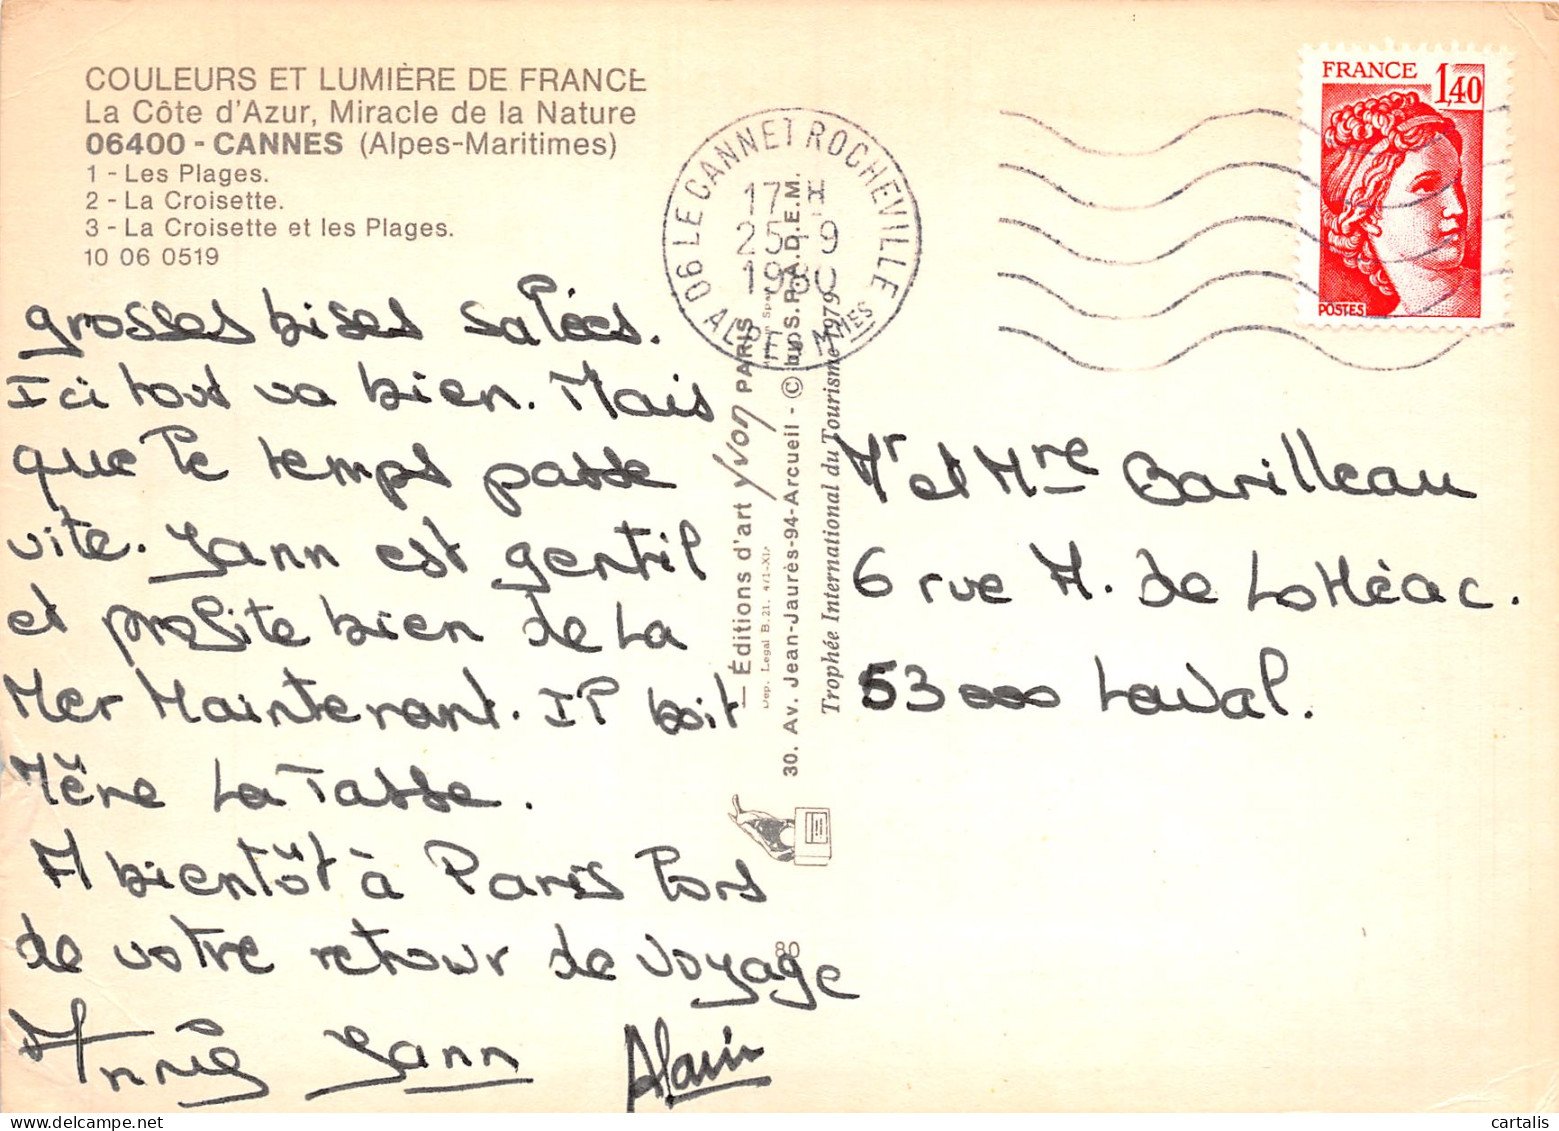 COULEURS ET LUMIÈRE DE FRANCE
La Côte d'Azur, Miracle de la Nature
06400 - CANNES (Alpes-Maritimes)
1 - Les Plages.
2 - La Croisette.
3 - La Croisette et les Plages.
10 06 0519
grosses bises salées.
Ici tout va bien. Mais
que le temps passe
vite. Yann est gentil
et profite bien de la
Mer Maintenant. Il boit
Même La Tasse.
A bientôt à Paris lors
de votre retour de voyage
Annie Yann Alain
06 LE CANNET ROCHEVILLE
17 H
25-9
1980
ALPES MMES
FRANCE 1,40
POSTES
Mr et Mme Barilleau
6 rue A. de LoHéac.
53000 Laval.
— Éditions d'art Yvon PARIS
Dep. Legal B.21.
30. Av. Jean-Jaurès-94-Arcueil - © by S.P.A.D.E.M.
Trophée International du Tourisme 1979
80
cartalis